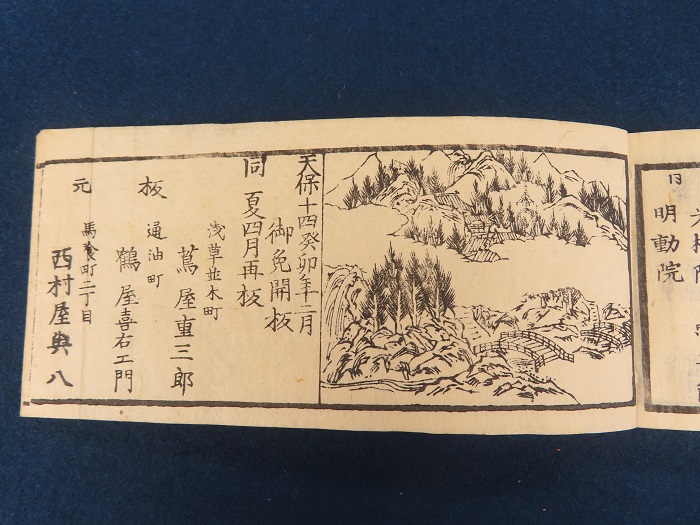 同
明動院
天保十四癸卯年二月
御免開板
同 夏四月再板
浅草並木町
蔦屋重三郎
板
通油町
鶴屋喜右エ門
元
馬喰町二丁目
西村屋與八